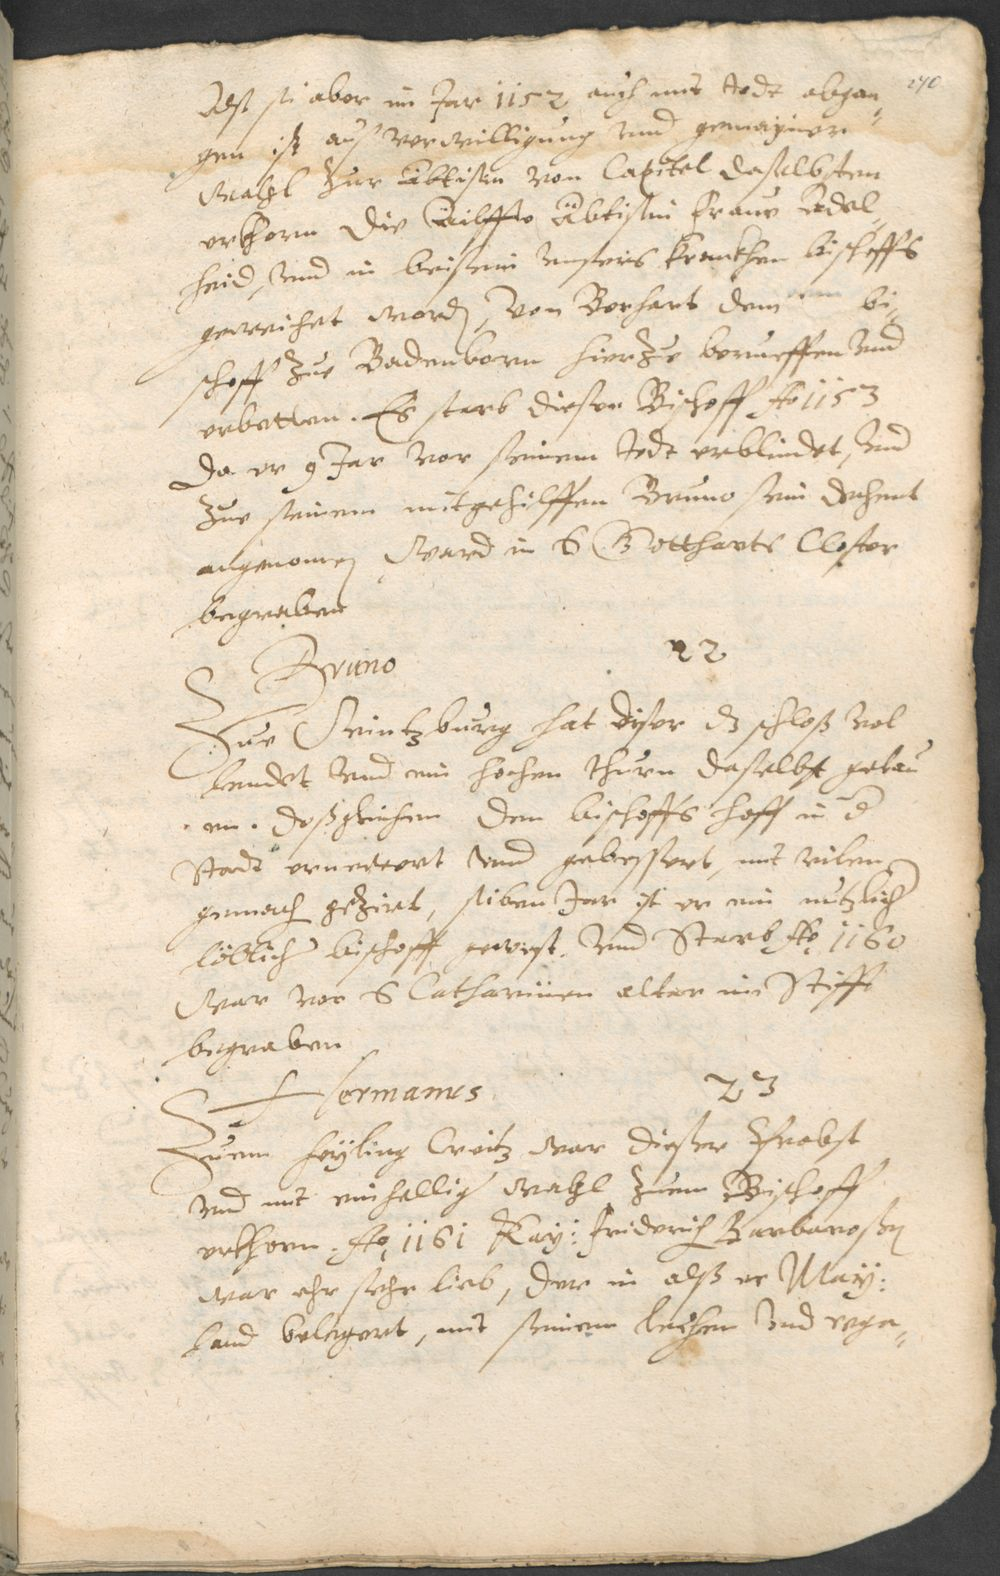 240
Alß sie aber im Jar 1152 auch mit todt abgan¬
gen ist aus verwilligung und gemeyner
Wahl zur Äbtisin von Capitel daselbsten
erkhorn die Eilffte Äbtisin fraue Adel¬
heid, und in beisein unsers kranckhen bischoffs
geweichet word, von Berhart dem bi¬
schoff zue Badenborn hierzue berueffen und
erbetten. Es starb dieser Bischoff Ao 1153
Da er 9 Jar vor seinem todt erblindet, und
zue seinem mitgehilffen Bruno sein dechent
angenomen Ward in S Gottharts Closter
begraben
Bruno 22
Zue Wintzburg hat diser dz schloß vol
lendet und ein hochen thurn daselbst gebau
en. deßgleichen den bischoffs hoff in d
Stadt erneuert und gebessert, mit vilen
gemach geziert, siben Jar ist er ein nutzlich
löblich bischoff gewest. und Starb Ao 1160
War vor S Catharinen altar im Stifft
begraben
Hermanus 23
Zuem heyling Creitz war dieser Probst
und mit einhellig Wahl zuem Bischoff
erkhorn. Ao 1161 Kay: friderich Barbarossen
war ehr sehr lieb, der in alß er May:
land belegert, mit seinem lechen und rega¬